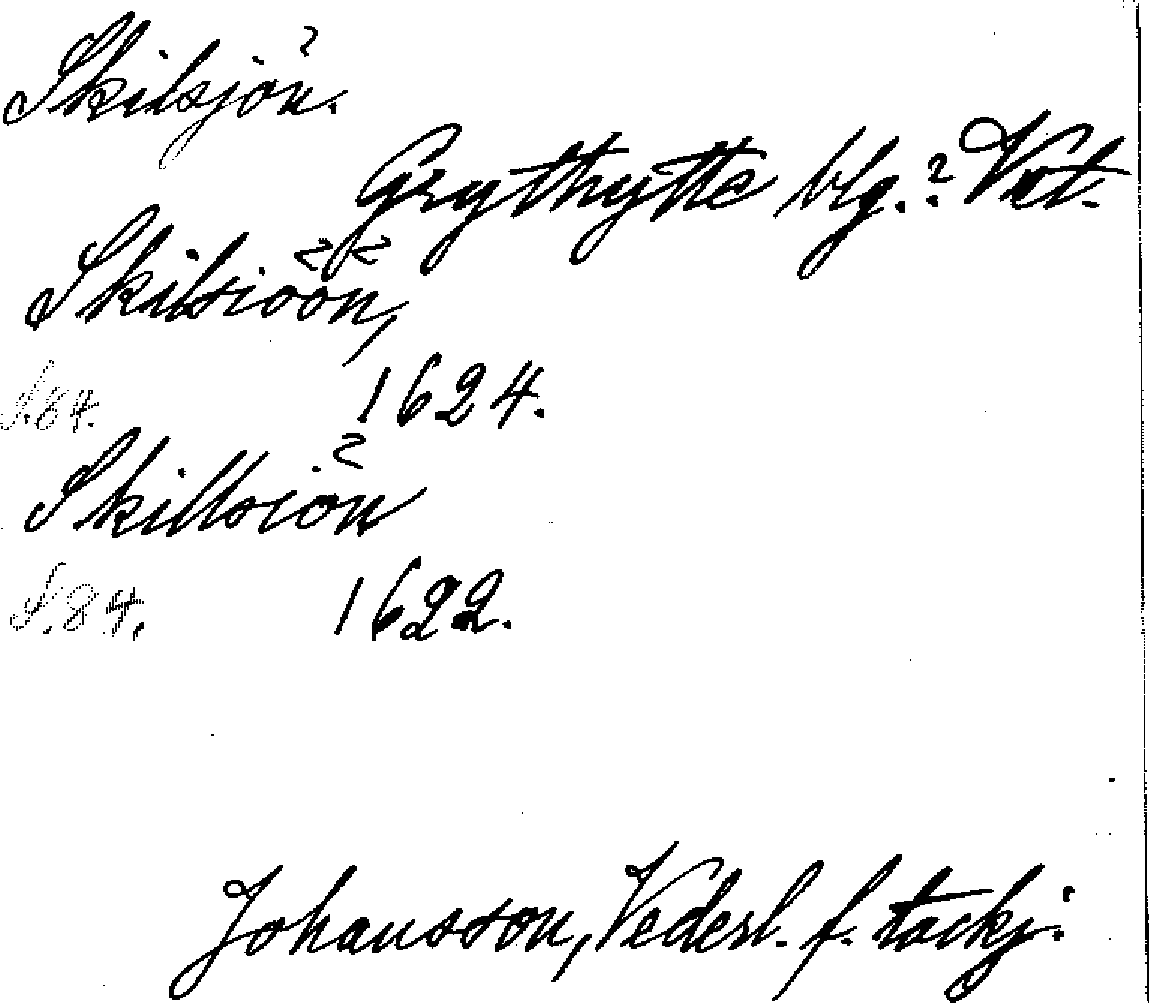 Skilsjön.
Grythytte blg.? Vet.
Skilsiöön,
S.84. 1624.
Skillsiön
S.84. 1622.
Johansson, Vederl. f. tackj.